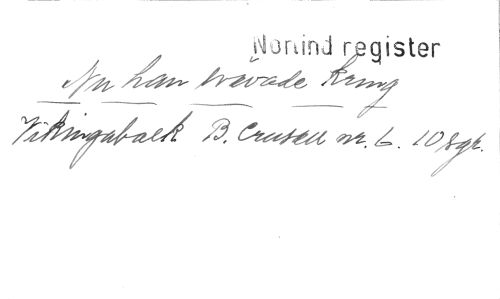 Norlind register
Nu han svävade kring
Vikingabalk B. Crusell nr. 6. 10 sgr.